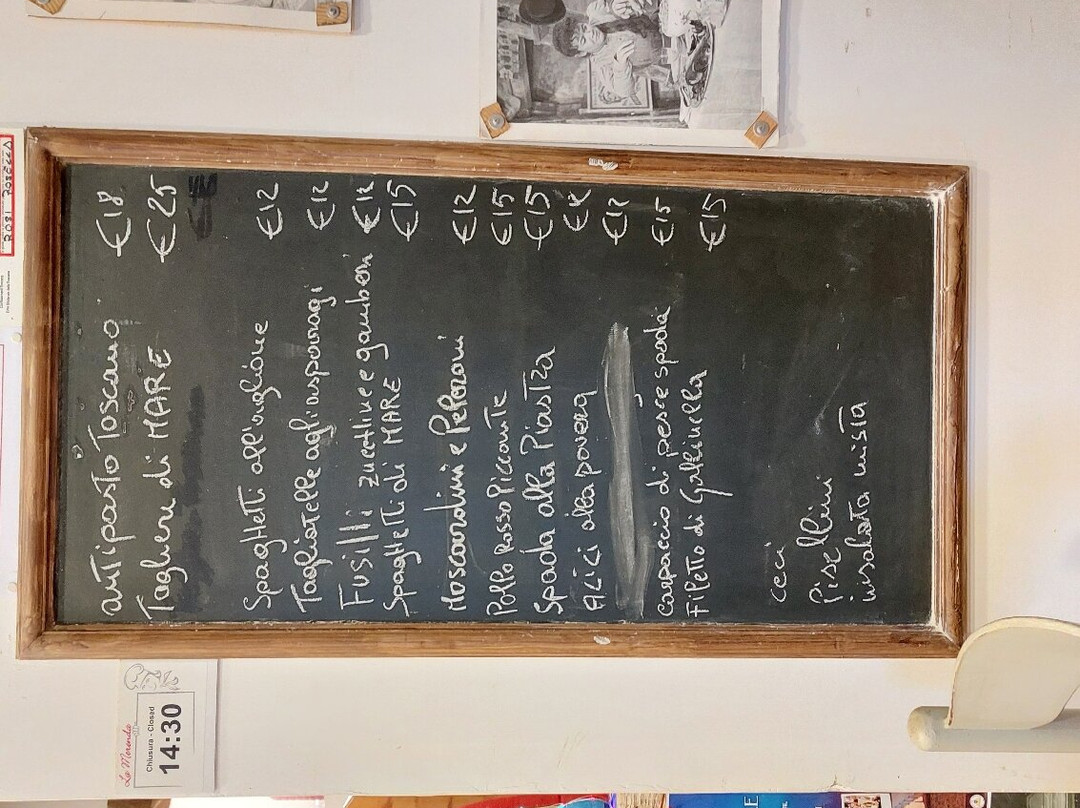 antipasto Toscano €18
Tagliere di MARE €25
SpagHetti all'aglione €12
Tagliatelle agli asparagi €12
Fusilli zucchine e gamberi €12
SpagHetti di MARE €15
Moscardini e Peperoni €12
Polpo Rosso Piccante €15
Spada alla Piastra €15
Alici alla povera €12
€12
Carpaccio di pesce spada €15
Filetto di Gallinella €15
ceci
Pisellini
insalata mista
La Merenda
Chiusura - Closed
14:30